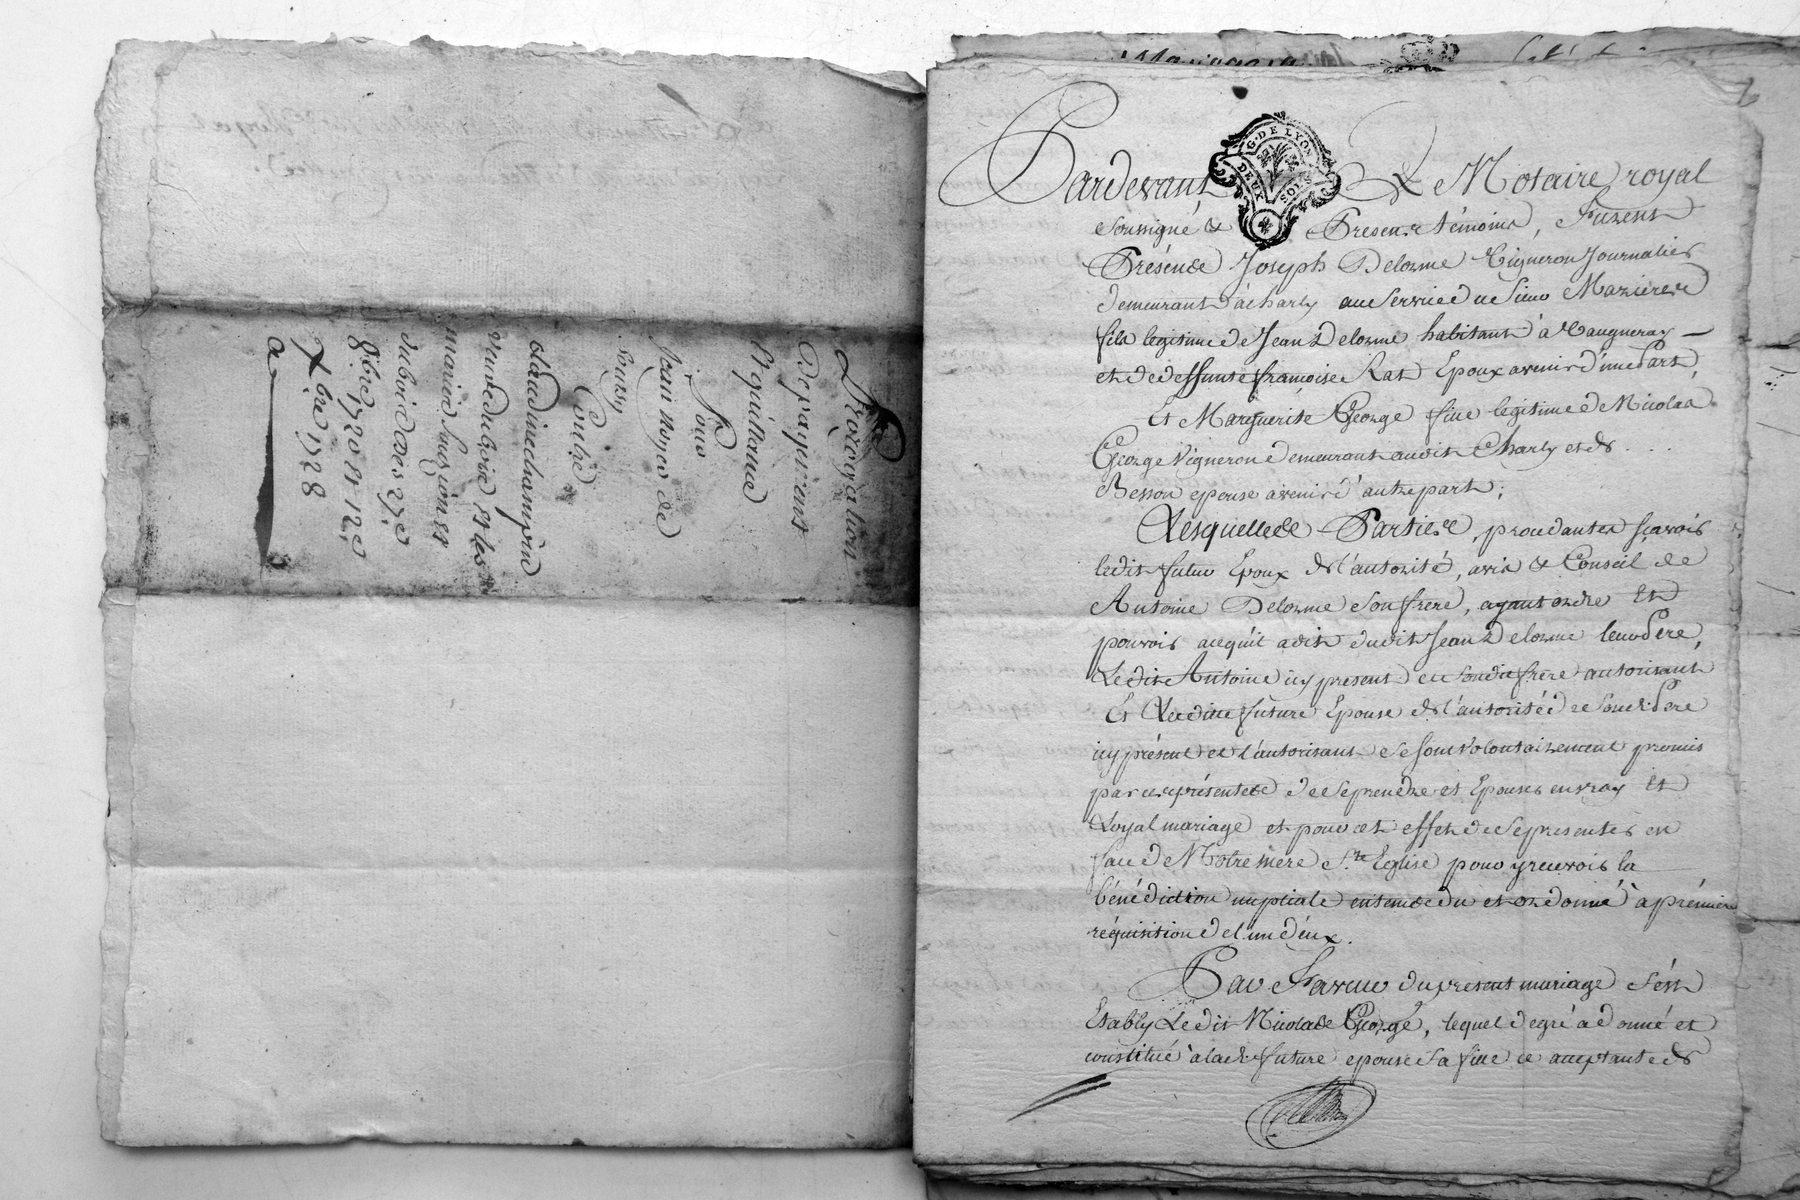 Prorogation
De payement
Réquillone
Pour
Jean noyer de
Souzy
Contre
claudine champin
veuve dubois et les
mariés
dubois des 27e
8bre 1720 et 12e
Xbre 1728
G. DE LYON
DEUX SOLS
Pardevant Le Notaire royal
soussigné & Presens témoins, furent
Présents Joseph Delorme Vigneron Journalier
demeurant à charly au service du sieur Mazieres
fils legitime de Jean Delorme habitant à Vaugneray
et de deffunte françoise Rat Epoux avenir d'une part,
Et Marguerite George fille legitime de Nicolas
George Vigneron demeurant audit Charly et de . . .
Besson epouse avenir d'autre part;
Lesquelles Parties, procedantes sçavoir
ledit futur Epoux de l'autorité, avis & Conseil de
Antoine Delorme son frere, ayant ordre Et
pouvoir acequ'il adit dudit Jean Delorme leur Pere,
Ledit Antoine icy present et sondit frere autorisant
Et Ladite future Epouse de l'autorité de sond. Pere
icy présent et l'autorisant se sont volontairement promis
par ces présentes de se prendre et Epouser en vray Et
Loyal mariage et pour cet effet de se presenter en
face de Notre mere Ste Eglise pour y recevoir la
bénédiction nuptiale entendu et ordonné à première
réquisition de l'un d'eux.
En Faveur du present mariage s'est
Etably Ledit Nicolas George, lequel de gré a donné et
constitué à lad. future epouse sa fille ce acceptante de